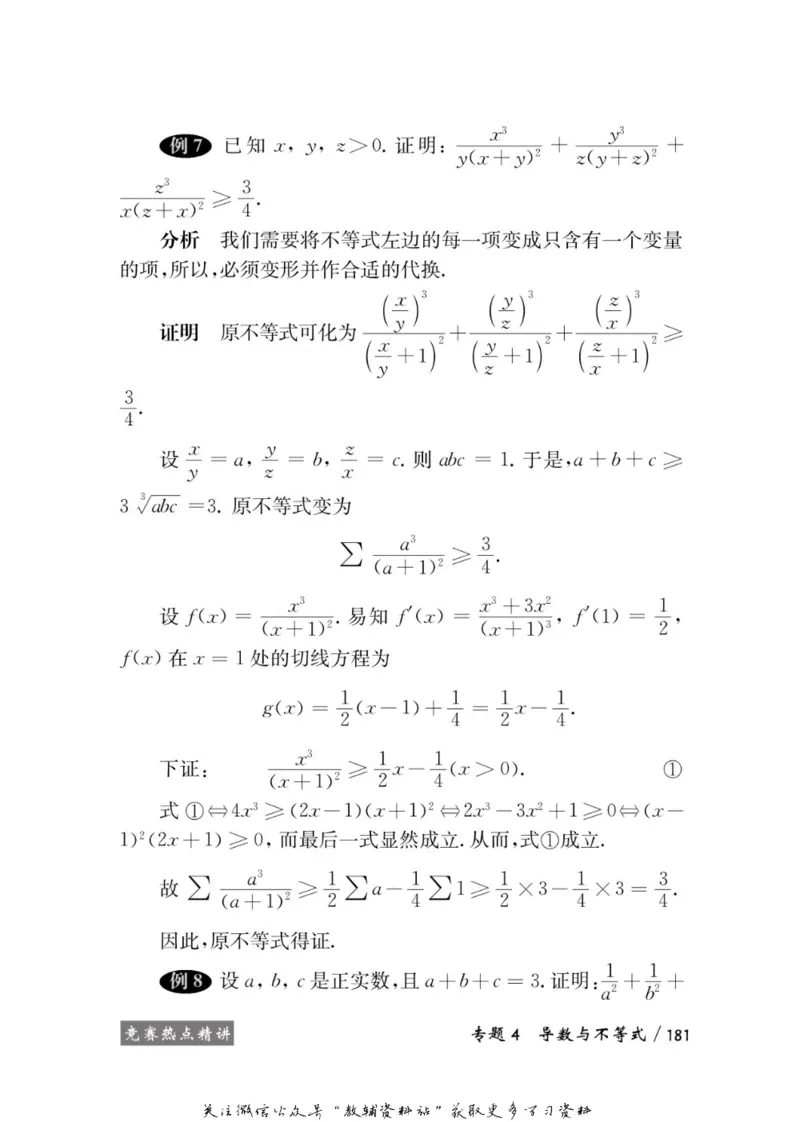 例7 已知 x, y, z>0. 证明: \frac{x^3}{y(x+y)^2} + \frac{y^3}{z(y+z)^2} +
\frac{z^3}{x(z+x)^2} ⩾ \frac{3}{4}.
分析 我们需要将不等式左边的每一项变成只含有一个变量
的项,所以,必须变形并作合适的代换.
证明 原不等式可化为 \frac{(\frac{x}{y})^3}{(\frac{x}{y}+1)^2} + \frac{(\frac{y}{z})^3}{(\frac{y}{z}+1)^2} + \frac{(\frac{z}{x})^3}{(\frac{z}{x}+1)^2} ⩾
\frac{3}{4}.
设 \frac{x}{y} = a, \frac{y}{z} = b, \frac{z}{x} = c. 则 abc = 1. 于是,a+b+c ⩾
3\sqrt[3]{abc} =3. 原不等式变为
∑ \frac{a^3}{(a+1)^2} ⩾ \frac{3}{4}.
设 f(x) = \frac{x^3}{(x+1)^2}. 易知 f′(x) = \frac{x^3+3x^2}{(x+1)^3}, f′(1) = \frac{1}{2},
f(x) 在 x = 1 处的切线方程为
g(x) = \frac{1}{2}(x-1)+\frac{1}{4} = \frac{1}{2}x-\frac{1}{4}.
下证: \frac{x^3}{(x+1)^2} ⩾ \frac{1}{2}x-\frac{1}{4}(x>0). ①
式①⇔4x^3⩾(2x-1)(x+1)^2⇔2x^3-3x^2+1⩾0⇔(x-
1)^2(2x+1)⩾0, 而最后一式显然成立. 从而,式①成立.
故 ∑ \frac{a^3}{(a+1)^2} ⩾ \frac{1}{2}∑a-\frac{1}{4}∑1 ⩾ \frac{1}{2}×3-\frac{1}{4}×3 = \frac{3}{4}.
因此,原不等式得证.
例8 设 a, b, c 是正实数,且 a+b+c = 3. 证明: \frac{1}{a^2}+\frac{1}{b^2}+
竞赛热点精讲 专题4 导数与不等式 / 181
关注微信公众号“教辅资料站”获取更多学习资料